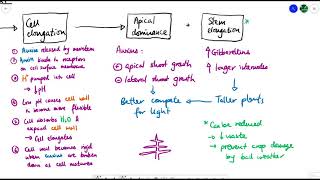 Cell elongation
Apical dominance
+
Stem elongation
*
① Auxin released by meristem
② Auxin binds to receptors on cell surface membrane
③ H⁺ pumped into cell
↓pH
④ Low pH causes cell wall to become more flexible
⑤ Cell absorbs H₂O & expand cell wall
→ Cell elongates
⑥ Cell wall becomes rigid when auxins are broken down as cell matures
Auxins:
⊕ apical shoot growth
⊖ lateral shoot growth
Better compete for light
↑ Gibberellins
↑ longer internodes
Taller plants
* Can be reduced
↓ waste
→ prevent crop damage by bad weather